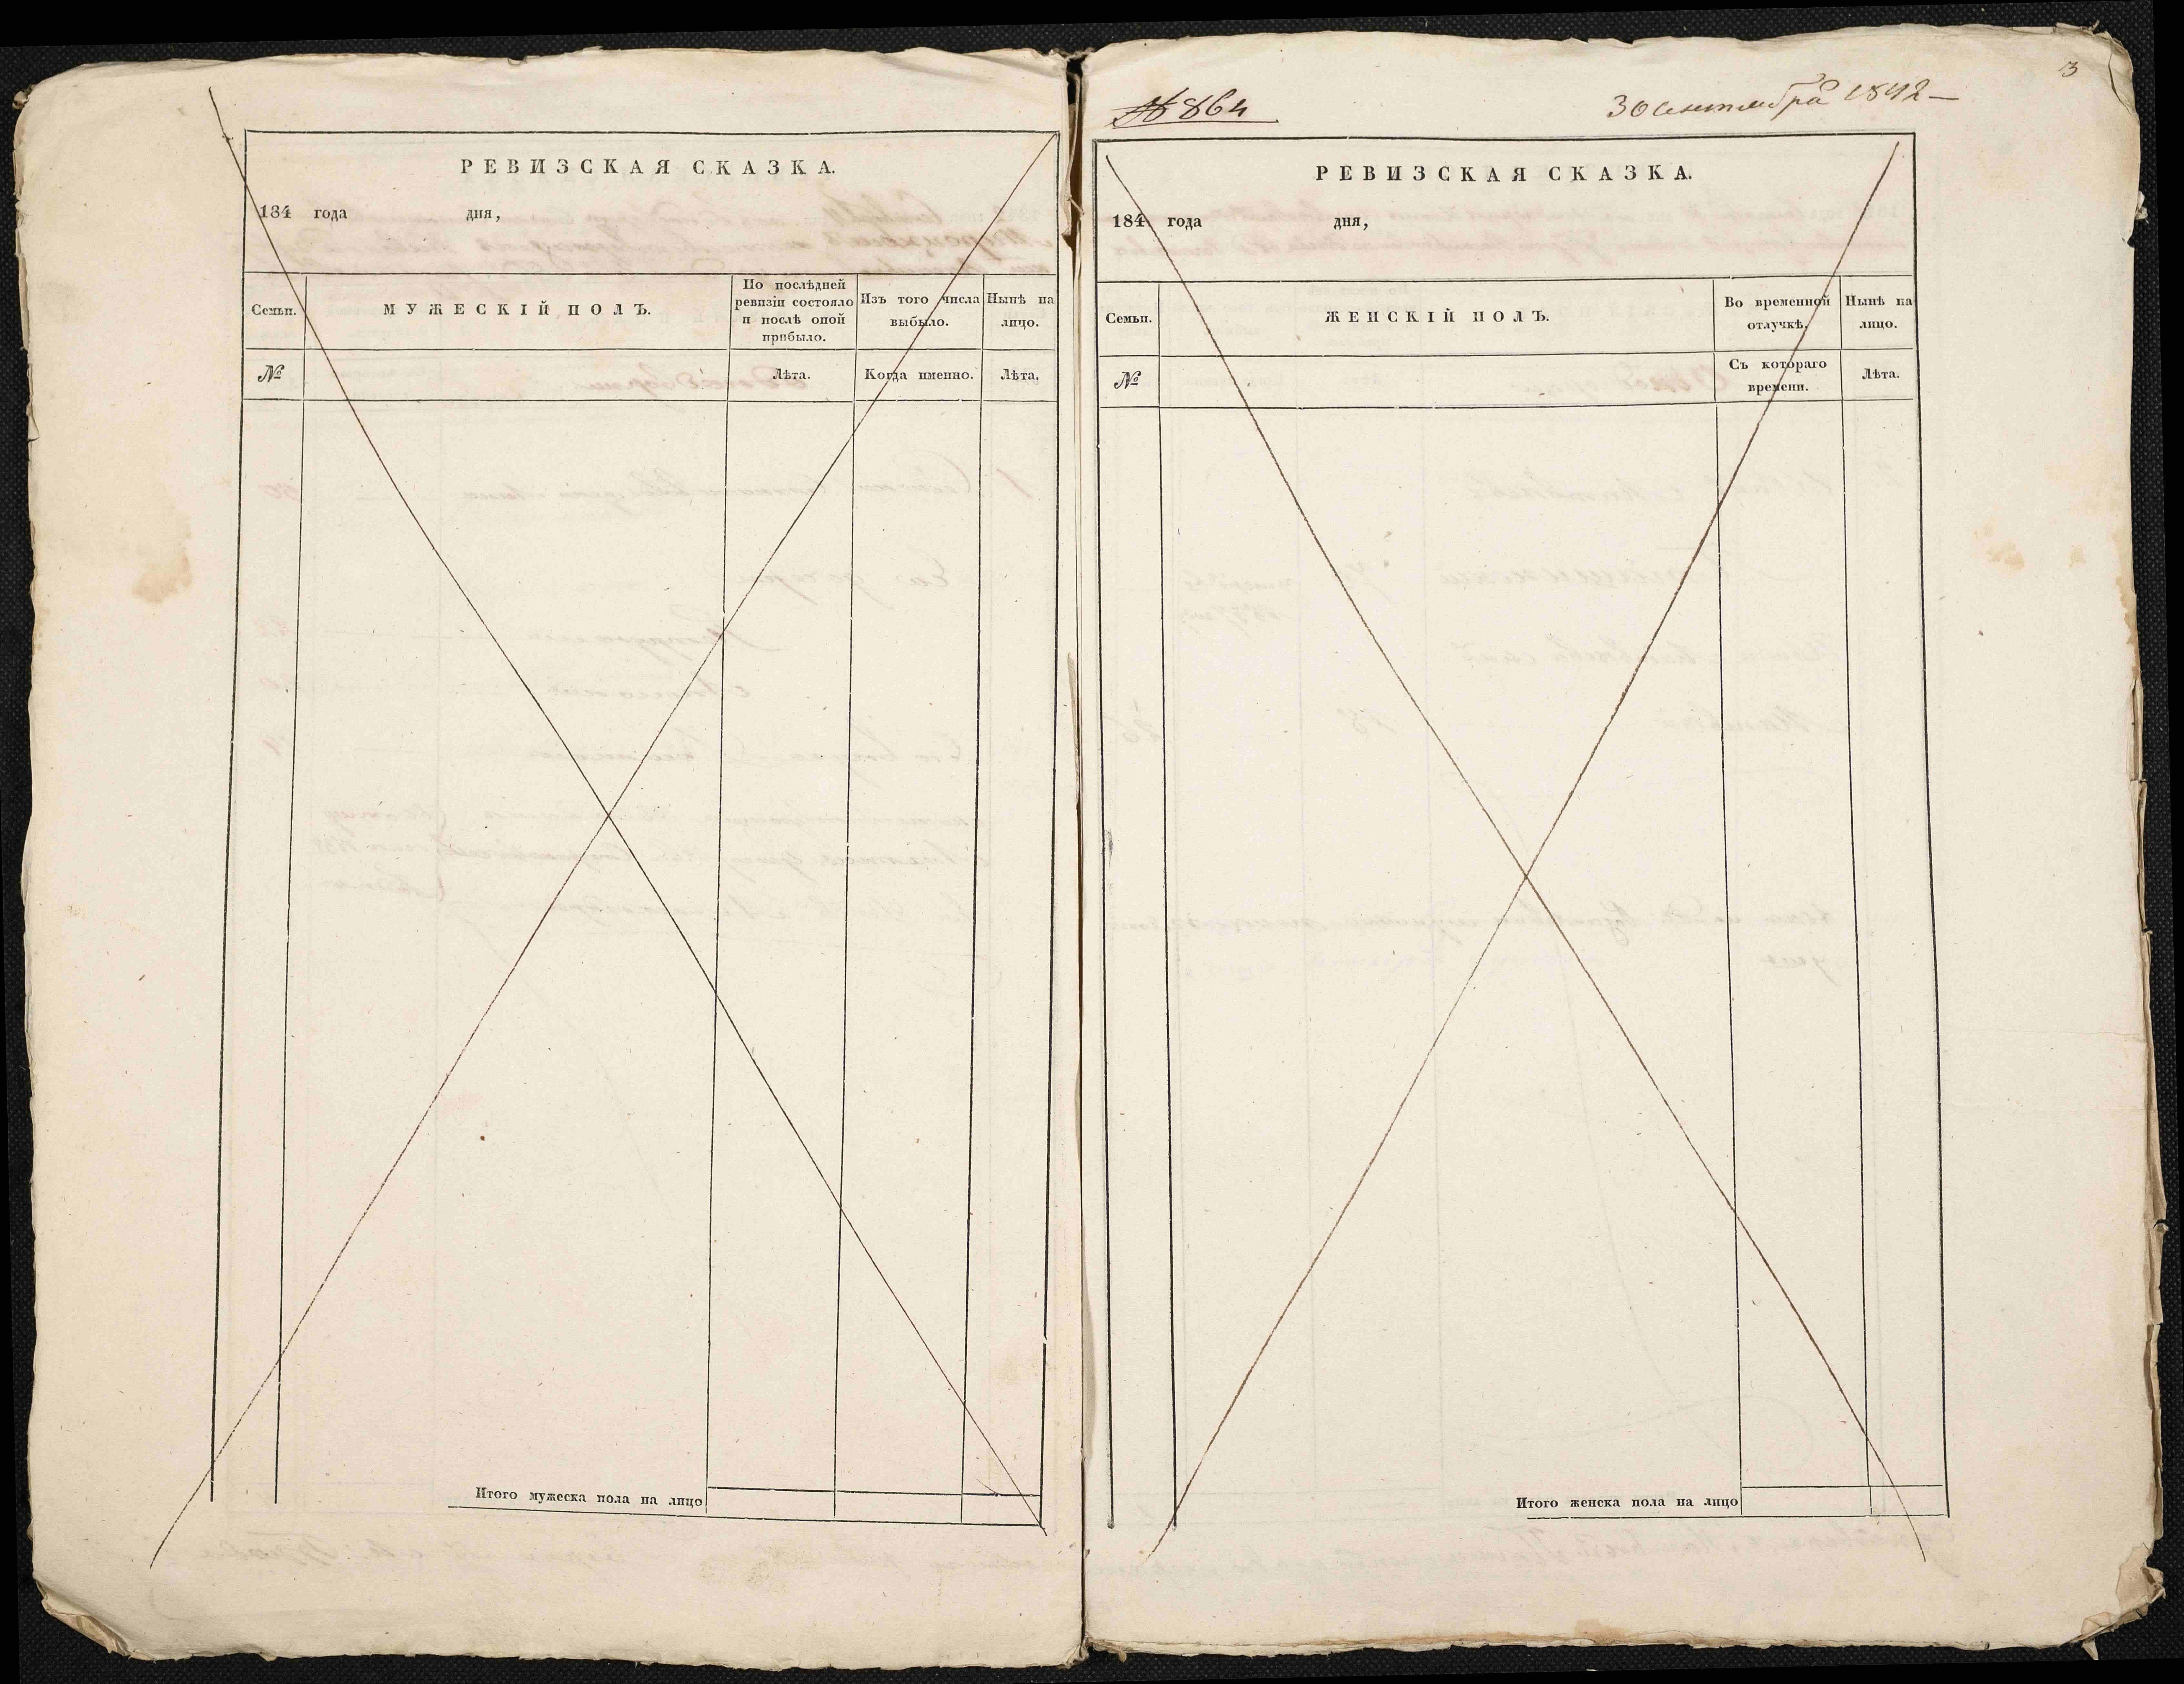 РЕВИЗСКАЯ СКАЗКА.
184 года дня,
Семьи.
МУЖЕСКІЙ ПОЛЪ.
По послѣдней ревизіи состояло и послѣ оной прибыло.
Изъ того числа выбыло.
Нынѣ на лицо.
№
Лѣта.
Когда именно.
Лѣта.
Итого мужеска пола на лицо
3
№ 864
30 сентября 1842
РЕВИЗСКАЯ СКАЗКА.
184 года дня,
Семьи.
ЖЕНСКІЙ ПОЛЪ.
Во временной отлучкѣ.
Нынѣ на лицо.
№
Съ котораго времени.
Лѣта.
Итого женска пола на лицо